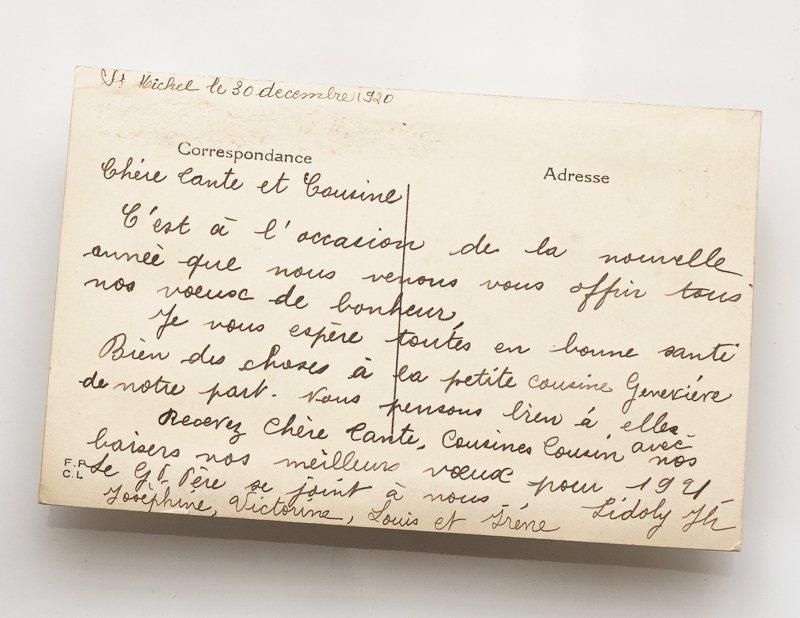 St Michel le 30 decembre 1920
Correspondance
Adresse
Chére Tante et Cousine
C'est à l'occasion de la nouvelle
année que nous venons vous offrir tous
nos voeux de bonheur,
Je vous espère toutes en bonne santé
Bien des choses à la petite cousine Geneviéve
de notre part. Nous pensons bien à elles
Recevez Chère Tante, Cousines Cousin avec nos
baisers nos meilleurs voeux pour 1921
Le Gd Père se joint à nous
Lidoly Jh
Joséphine, Victorine, Louis et Iréne
F.P
C.L